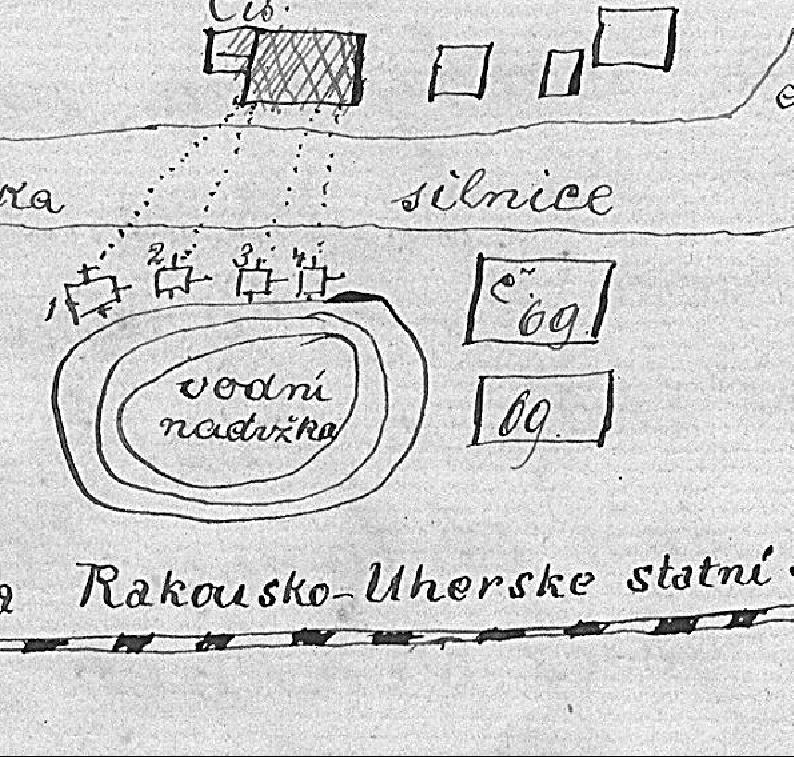 Čís.
ka silnice
1 2 3 4
č. 69.
69.
vodní
nádržka
Rakousko-Uherske statní